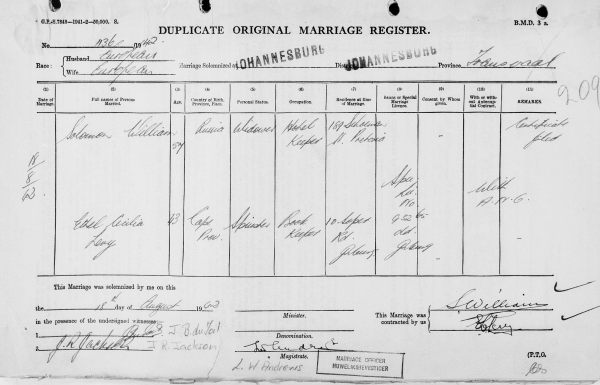 G.P.-S.7848—1941-2—50,000. S.
B.M.D. 3 a.
DUPLICATE ORIGINAL MARRIAGE REGISTER.
No.
Race: Husband European
Wife European
Marriage Solemnised at JOHANNESBURG
District JOHANNESBURG
Province Transvaal
209
(1) (2) (3) (4) (5) (6) (7) (8) (9) (10) (11)
Date of Marriage. Full names of Persons Married. Age. Country of Birth, Province, Place. Personal Status. Occupation. Residence at time of Marriage. Banns or Special Marriage Licence. Consent by Whom given. With or without Antenuptial Contract. REMARKS.
Solomon William 57 Russia Widower Hotel Keeper St. Pretoria - Certificate filed
18/8/42
Ethel Cecilia Levy 43 Cape Prov. Spinster Book Keeper 10 Soper Rd. Jo'burg Spec. Lic. No. 952 dd. Jo'burg - With A.N.C. -
This Marriage was solemnized by me on this
the 18th day of August 1942
in the presence of the undersigned witnesses:
1. J. B. du Toit
2. J. R. Jackson
J. R. Jackson
Minister.
Denomination.
Magistrate.
L. W. Andrews
MARRIAGE OFFICER
HUWELIKSBEVESTIGER
This Marriage was contracted by us
S. William
E. Levy
(P.T.O.